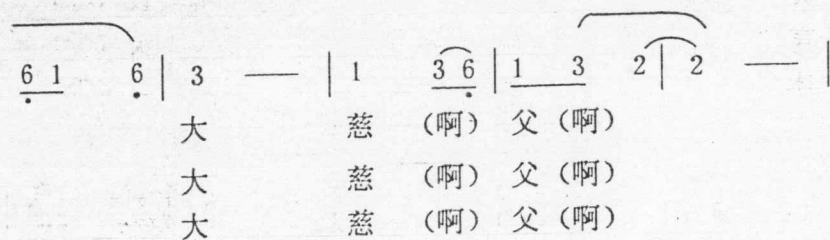 6 1 6 | 3 — | 1 3 6 | 1 3 2 | 2 — |
大 慈 (啊) 父 (啊)
大 慈 (啊) 父 (啊)
大 慈 (啊) 父 (啊)